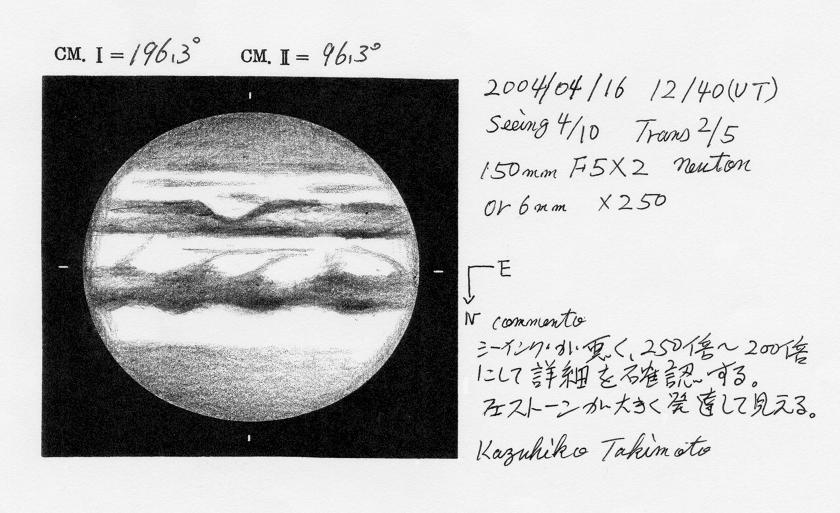 CM. I = 196.3° CM. II = 96.3°
2004/04/16 12/40(UT)
Seeing 4/10 Trans 2/5
150mm F5X2 neuton
Or 6mm X250
E
N
commento
シーイングが悪く、250倍〜200倍
にして詳細を確認する。
フェストーンが大きく発達して見える。
Kazuhiko Takimoto